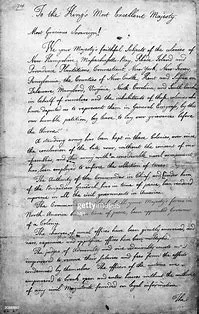 To the King's Most Excellent Majesty.
Most Gracious Sovereign!
We your Majesty's faithful subjects of the colonies of
New Hampshire, Massachusetts Bay, Rhode Island and
Providence Plantations, Connecticut, New York, New Jersey
Pennsylvania, the Counties of New Castle, Kent and Sussex on
Delaware, Maryland, Virginia, North Carolina, and South Carolina
in behalf of ourselves and the inhabitants of these colonies
who have deputed us to represent them in General Congress, by this
our humble petition, beg leave to lay our grievances before
the throne.
A standing army has been kept in these colonies ever since
the conclusion of the late war, without the consent of our
assemblies; and this army with a considerable naval armament
has been employed to enforce the collection of taxes.
The Authority of the Commander in Chief and under him
of the Brigadiers General has in time of peace, been rendered
supreme in all the civil governments in America.
The Commander in chief of all your Majesty's forces in
North America has, in time of peace, been appointed governor
of a colony.
The charges of usual offices have been greatly increased; and
new, expensive and oppressive offices have been multiplied.
The judges of admiralty and vice admiralty courts are
empowered to receive their salaries and fees from the effects
condemned by themselves. The officers of the customs are
empowered to break open and enter houses without the authority
of any civil Magistrate founded on legal information.
The
gettyimages